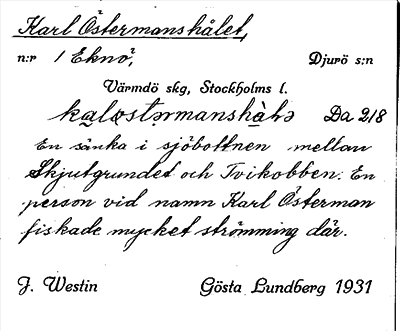 Karl Östermanshålet,
n:r 1 Eknö, Djurö s:n
Värmdö skg, Stockholms l.
kalǫstərmanshàlə Da 218
En sänka i sjöbottnen mellan
Skjutgrundet och Tvikobben. En
person vid namn Karl Österman
fiskade mycket strömming där.
J. Westin Gösta Lundberg 1931